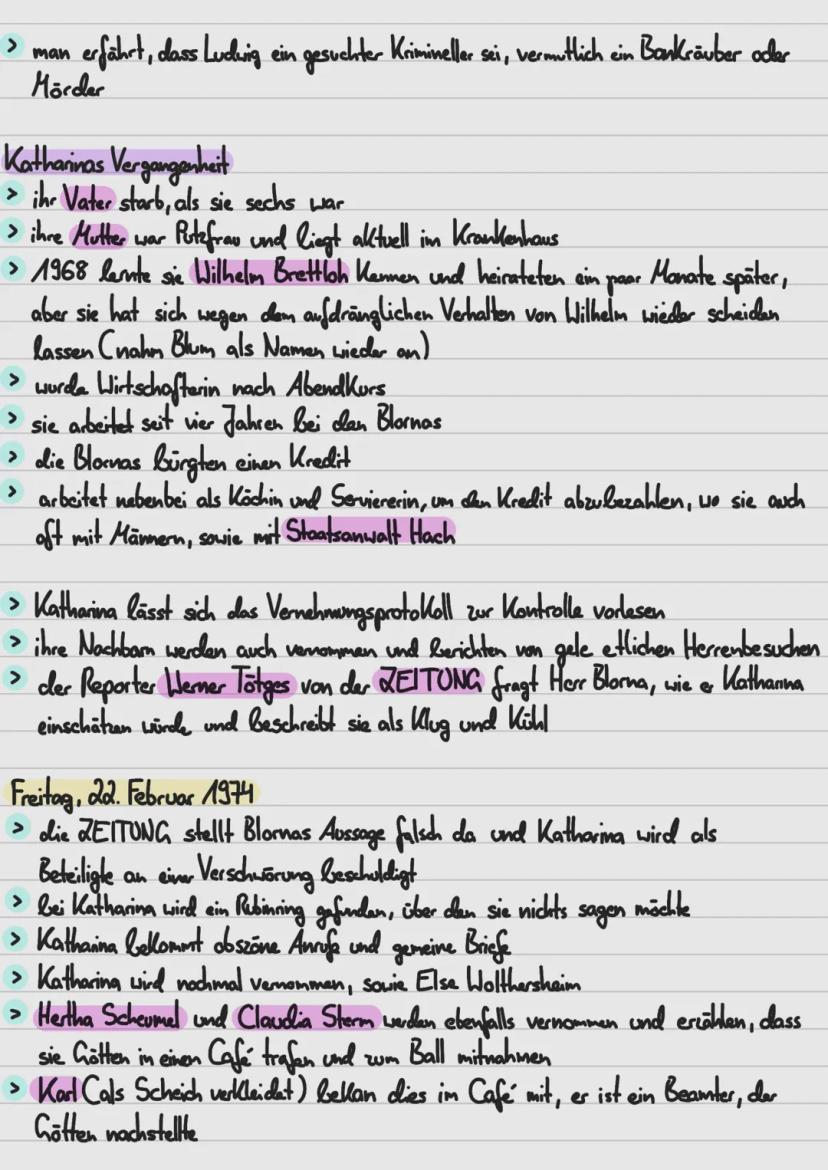 > man erfährt, dass Ludwig ein gesuchter Krimineller sei, vermutlich ein Bankräuber oder
Mörder
Katharinas Vergangenheit
> ihr Vater starb, als sie sechs war
> ihre Mutter war Putzfrau und liegt aktuell im Krankenhaus
> 1968 lernte sie Wilhelm Brettloh kennen und heirateten ein paar Monate später,
aber sie hat sich wegen dem aufdränglichen Verhalten von Wilhelm wieder scheiden
lassen (nahm Blum als Namen wieder an)
> wurde Wirtschafterin nach Abendkurs
> sie arbeitet seit vier Jahren bei den Blornas
> die Blornas bürgten einen Kredit
> arbeitet nebenbei als Köchin und Serviererin, um den Kredit abzubezahlen, wo sie auch
oft mit Männern, sowie mit Staatsanwalt Hach
> Katharina lässt sich das Vernehmungsprotokoll zur Kontrolle vorlesen
> ihre Nachbarn werden auch vernommen und berichten von gele etlichen Herrenbesuchen
> der Reporter Werner Tötges von der ZEITUNG fragt Herr Blorna, wie er Katharina
einschätzen würde, und beschreibt sie als klug und kühl
Freitag, 22. Februar 1974
> die ZEITUNG stellt Blornas Aussage falsch da und Katharina wird als
Beteiligte an einer Verschwörung beschuldigt
> bei Katharina wird ein Rubinring gefunden, über den sie nichts sagen möchte
> Katharina bekommt obszöne Anrufe und gemeine Briefe
> Katharina wird nochmal vernommen, sowie Else Woltersheim
> Hertha Scheumel und Claudia Sterm werden ebenfalls vernommen und erzählen, dass
sie Götten in einen Café trafen und zum Ball mitnahmen
> Karl (als Scheich verkleidet) bekam dies im Café mit, er ist ein Beamter, der
Götten nachstellte